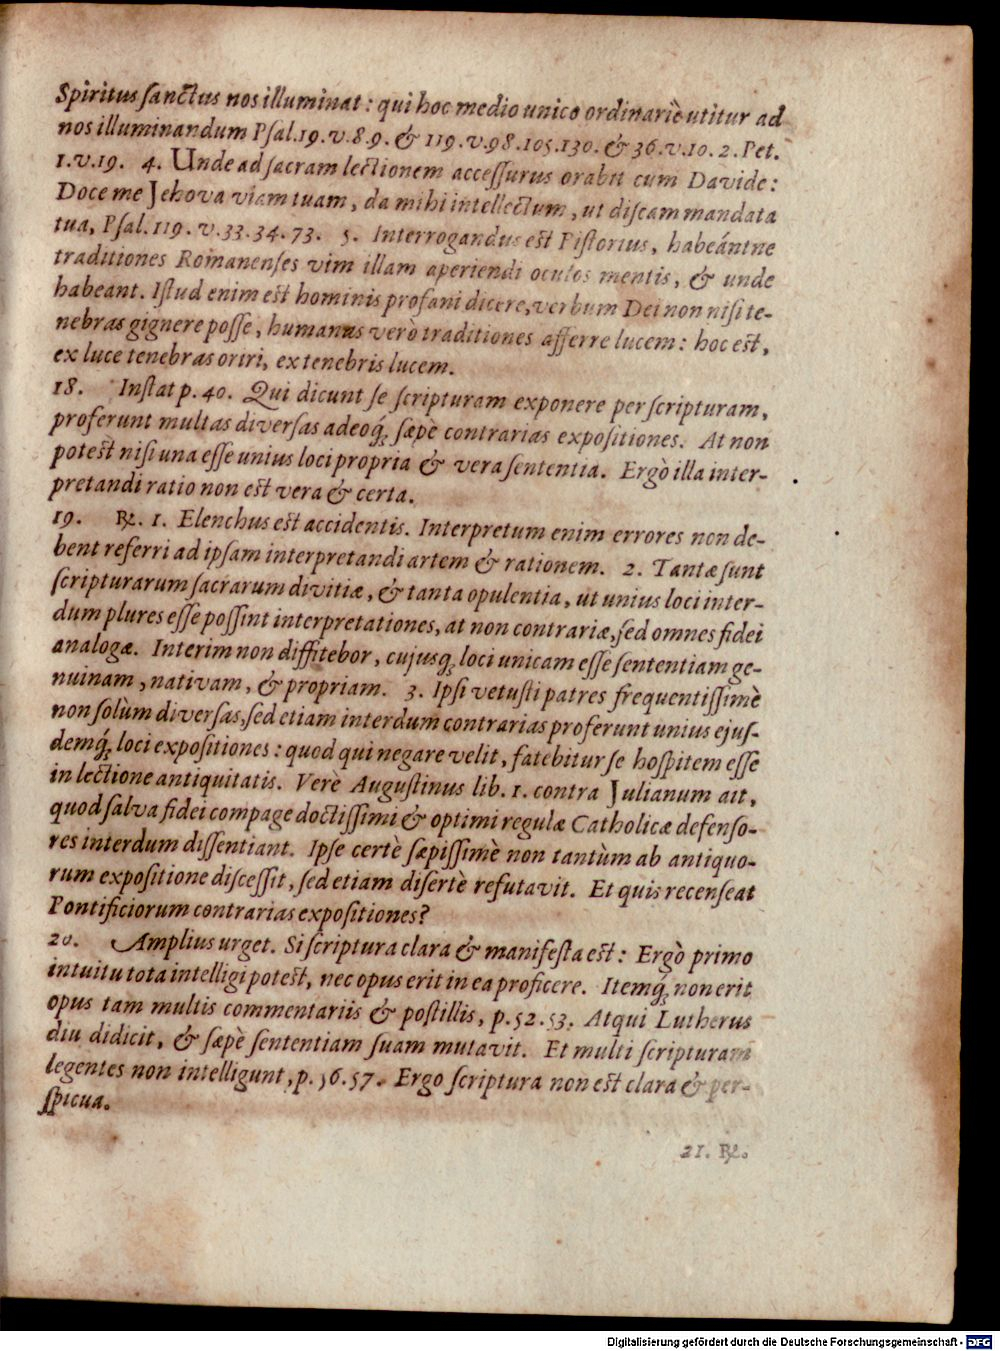 Spiritus ſanctus nos illuminat: qui hoc medio unico ordinariè utitur ad
nos illuminandum Pſal.19.v.8.9. & 119.v.98.105.130. & 36.v.10.2.Pet.
1.v.19. 4. Unde ad ſacram lectionem acceſſurus orabit cum Davide:
Doce me Jehova viam tuam, da mihi intellectum, ut diſcam mandata
tua, Pſal.119. v.33.34.73. 5. Interrogandus est Piſtorius, habeántne
traditiones Romanenſes vim illam aperiendi oculos mentis, & unde
habeant. Iſtud enim est hominis profani dicere, verbum Dei non niſi te-
nebras gignere poſſe, humanas verò traditiones afferre lucem: hoc est,
ex luce tenebras oriri, ex tenebris lucem.
18. Inſtat p. 40. Qui dicunt ſe ſcripturam exponere per ſcripturam,
proferunt multas diverſas adeoq́ꝫ ſæpè contrarias expoſitiones. At non
potest niſi una eſſe unius loci propria & vera ſententia. Ergò illa inter-
pretandi ratio non est vera & certa.
19. ℞. 1. Elenchus est accidentis. Interpretum enim errores non de-
bent referri ad ipſam interpretandi artem & rationem. 2. Tantæ ſunt
ſcripturarum ſacrarum divitiæ, & tanta opulentia, ut unius loci inter-
dum plures eſſe poſſint interpretationes, at non contrariæ, ſed omnes fidei
analogæ. Interim non diffitebor, cujusqꝫ loci unicam eſſe ſententiam ge-
nuinam, nativam, & propriam. 3. Ipſi vetuſti patres frequentiſſimè
non ſolùm diverſas, ſed etiam interdum contrarias proferunt unius ejus-
demq́ꝫ loci expoſitiones: quod qui negare velit, fatebitur ſe hoſpitem eſſe
in lectione antiquitatis. Verè Auguſtinus lib. 1. contra Julianum ait,
quod ſalva fidei compage doctiſſimi & optimi regulæ Catholicæ defenſo-
res interdum diſſentiant. Ipſe certè ſæpiſſimè non tantùm ab antiquo-
rum expoſitione diſceſſit, ſed etiam diſertè refutavit. Et quis recenſeat
Pontificiorum contrarias expoſitiones?
20. Amplius urget. Si ſcriptura clara & manifeſta est: Ergò primo
intuitu tota intelligi potest, nec opus erit in ea proficere. Itemq́ꝫ non erit
opus tam multis commentariis & poſtillis, p.52.53. Atqui Lutherus
diu didicit, & ſæpè ſententiam ſuam mutavit. Et multi ſcripturam
legentes non intelligunt, p. 56.57. Ergo ſcriptura non est clara & per-
ſpicua.
21. ℞.
Digitalisierung gefördert durch die Deutsche Forschungsgemeinschaft - DFG